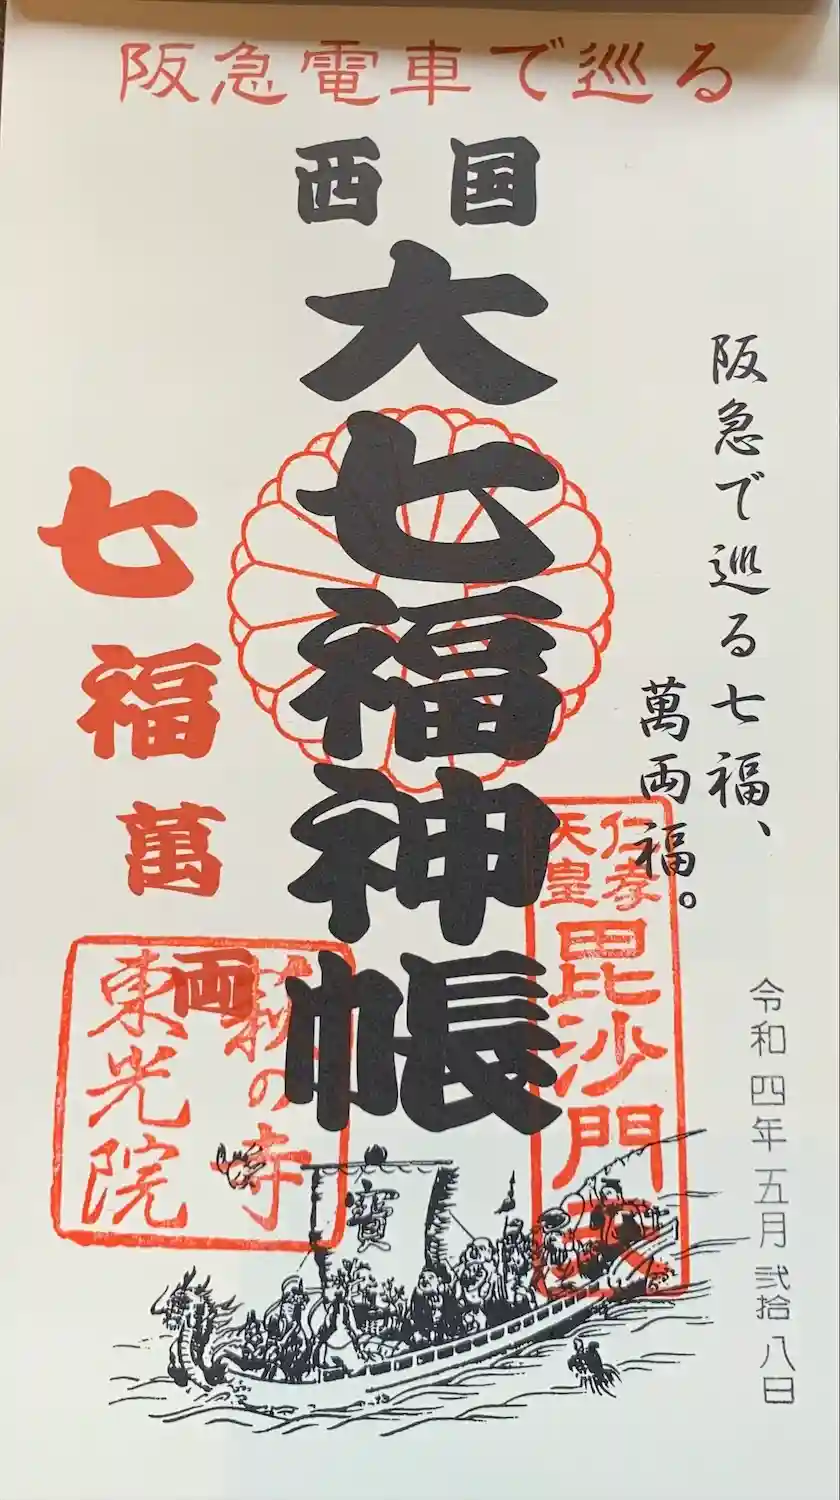 阪急電車で巡る
西国
大七福神帳
阪急で巡る七福、
萬両福。
令和四年五月弐拾八日
仁孝
天皇
毘沙門天
七福萬両
萩の寺
東光院
寳